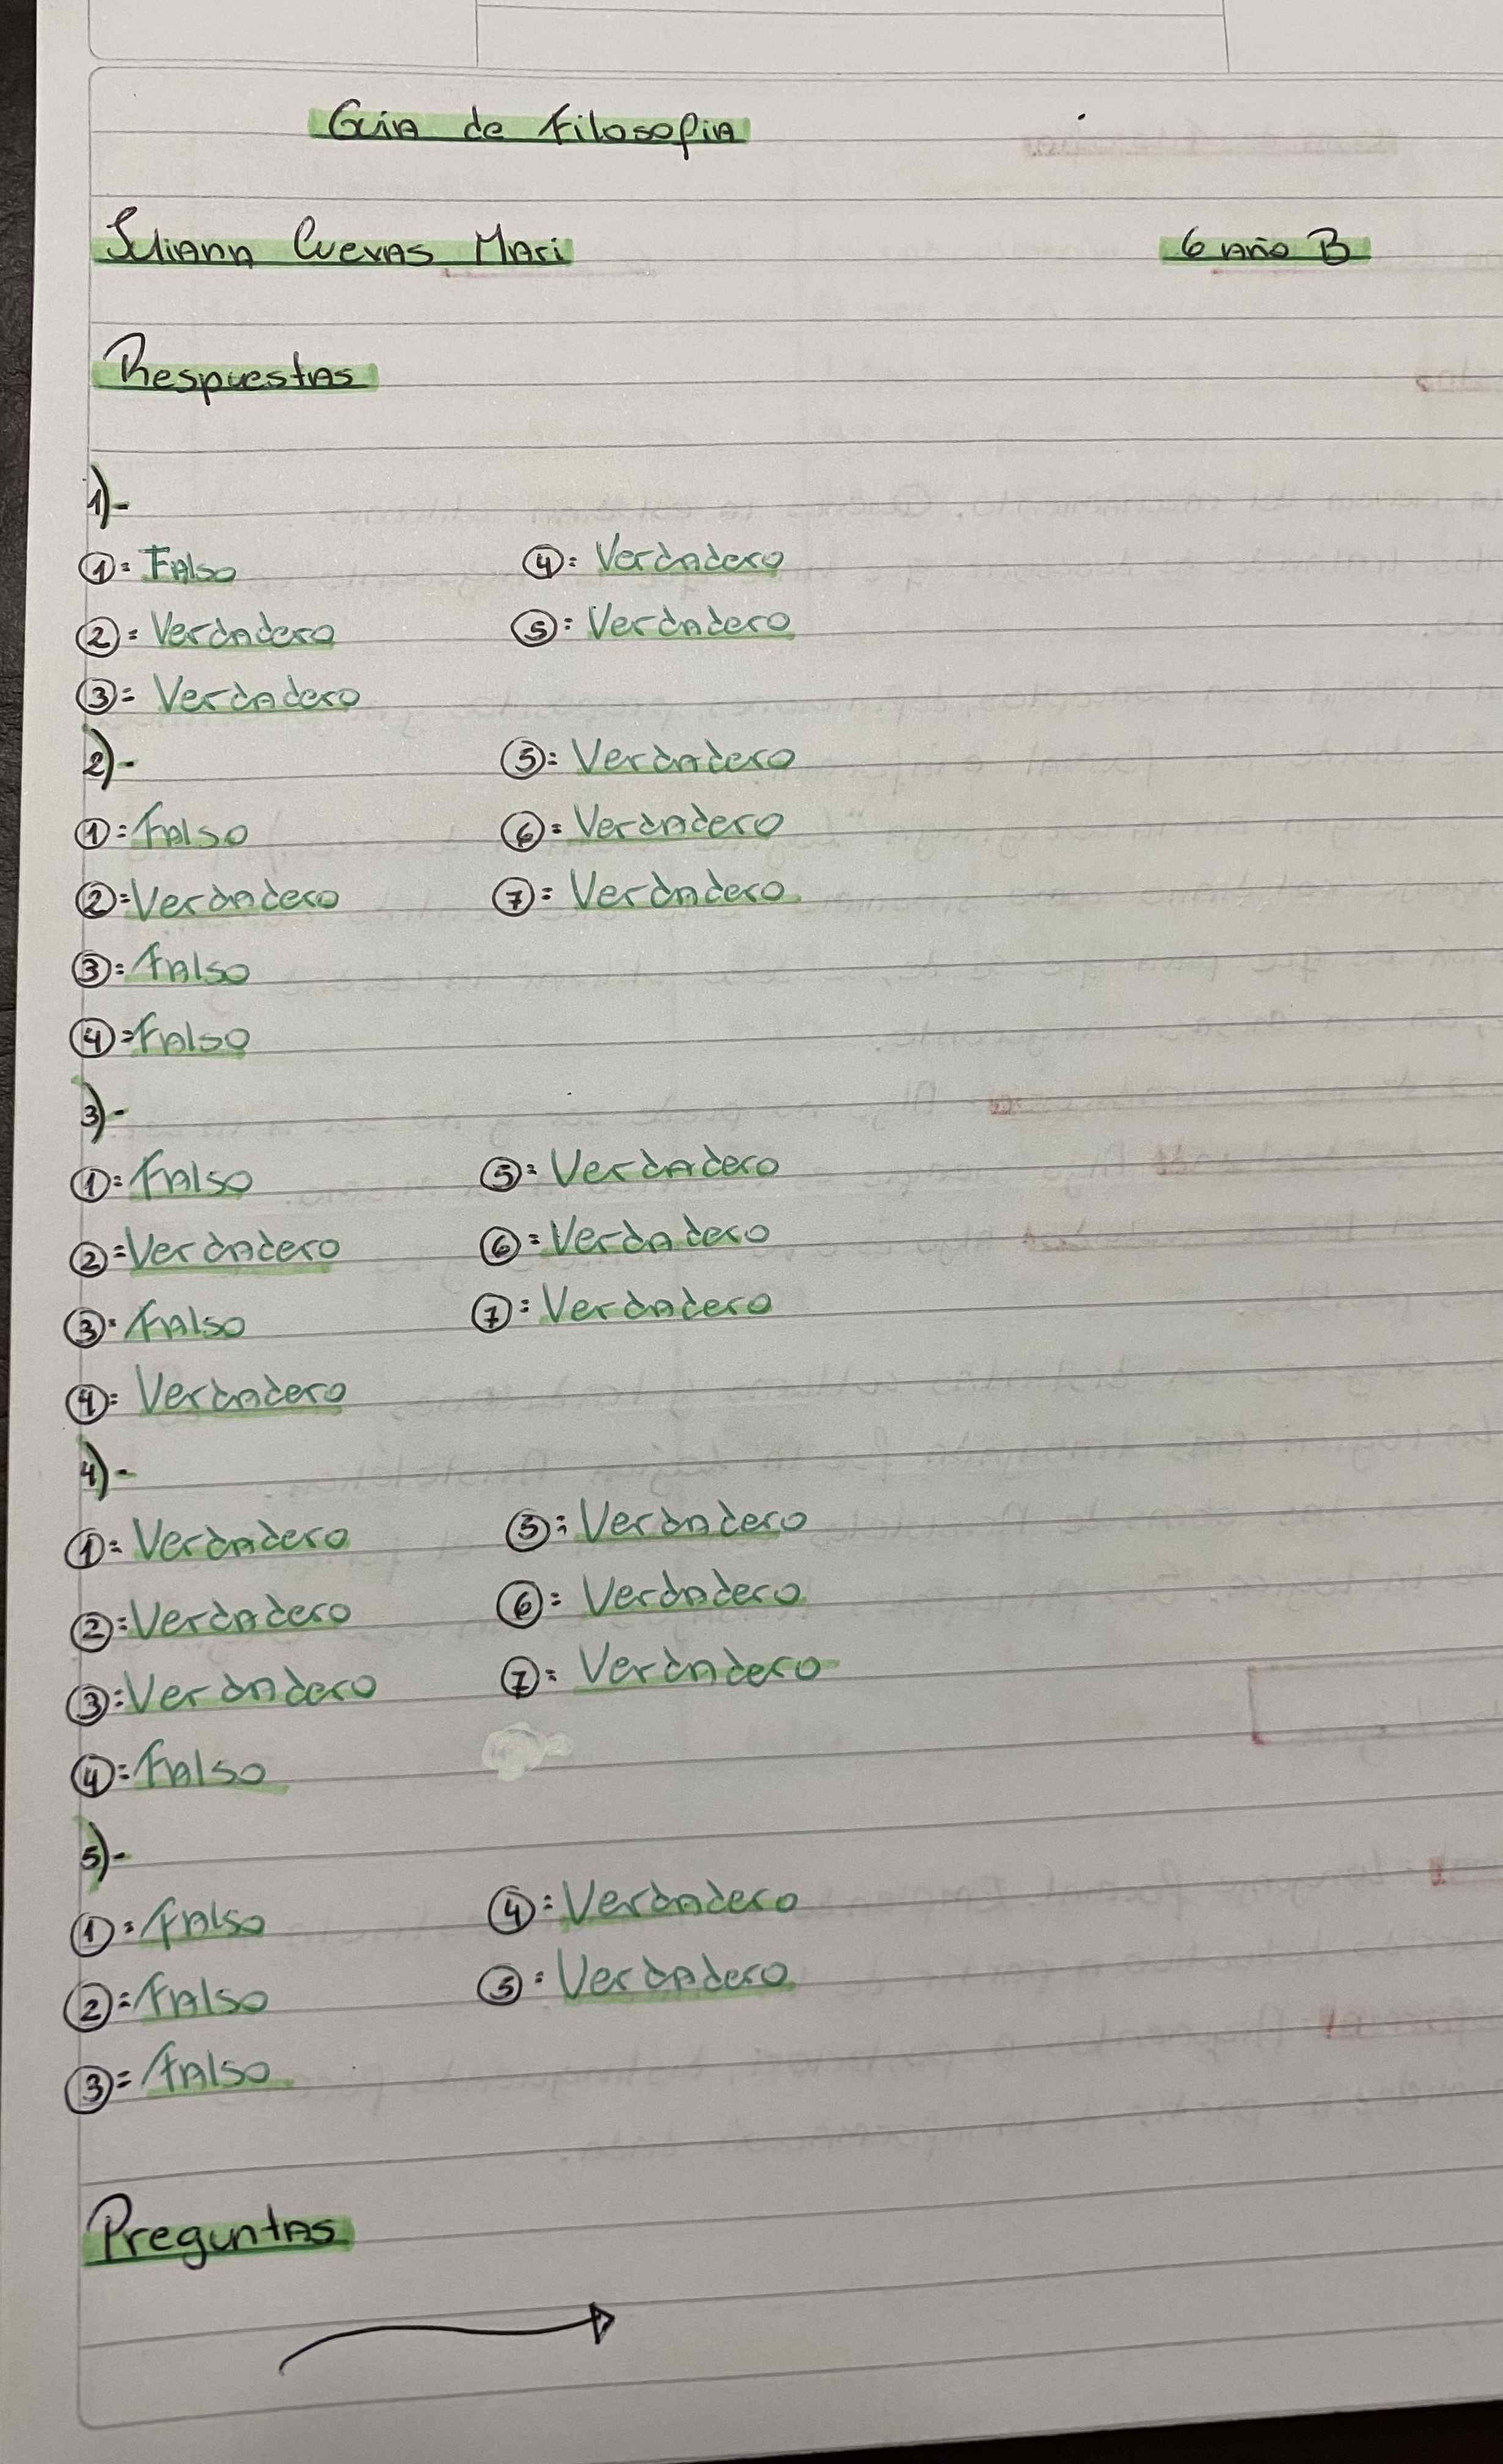 Guia de Filosofia
Juliana Cuevas Mari 6 Año B
Respuestas
1)-
①= Falso ④= Verdadero
②= Verdadero ⑤= Verdadero
③= Verdadero
2)- ⑤= Verdadero
①= Falso ⑥= Verdadero
②= Verdadero ⑦= Verdadero
③= Falso
④= Falso
3)-
①= Falso ⑤= Verdadero
②= Verdadero ⑥= Verdadero
③= Falso ⑦= Verdadero
④= Verdadero
4)-
①= Verdadero ⑤= Verdadero
②= Verdadero ⑥= Verdadero
③= Verdadero ⑦= Verdadero
④= Falso
5)-
①= Falso ④= Verdadero
②= Falso ⑤= Verdadero
③= Falso
Preguntas